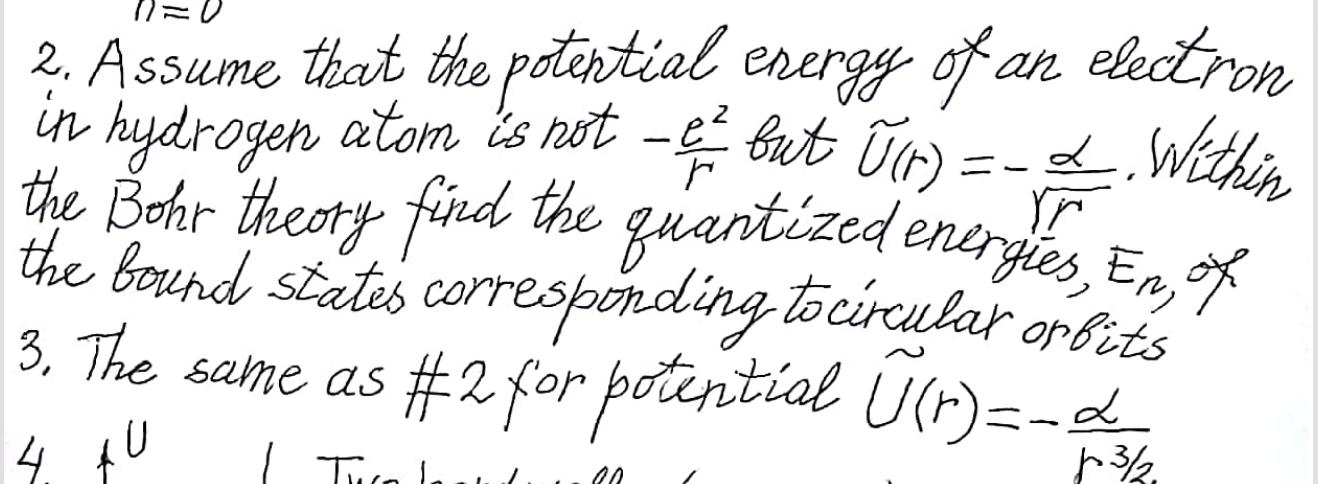 n=0
2. Assume that the potential energy of an electron
in hydrogen atom is not -e²/r but Ũ(r) = -α/√r. Within
the Bohr theory find the quantized energies, En, of
the bound states corresponding to circular orbits
3. The same as #2 for potential Ũ(r)=-α/r^3/2.
4. U